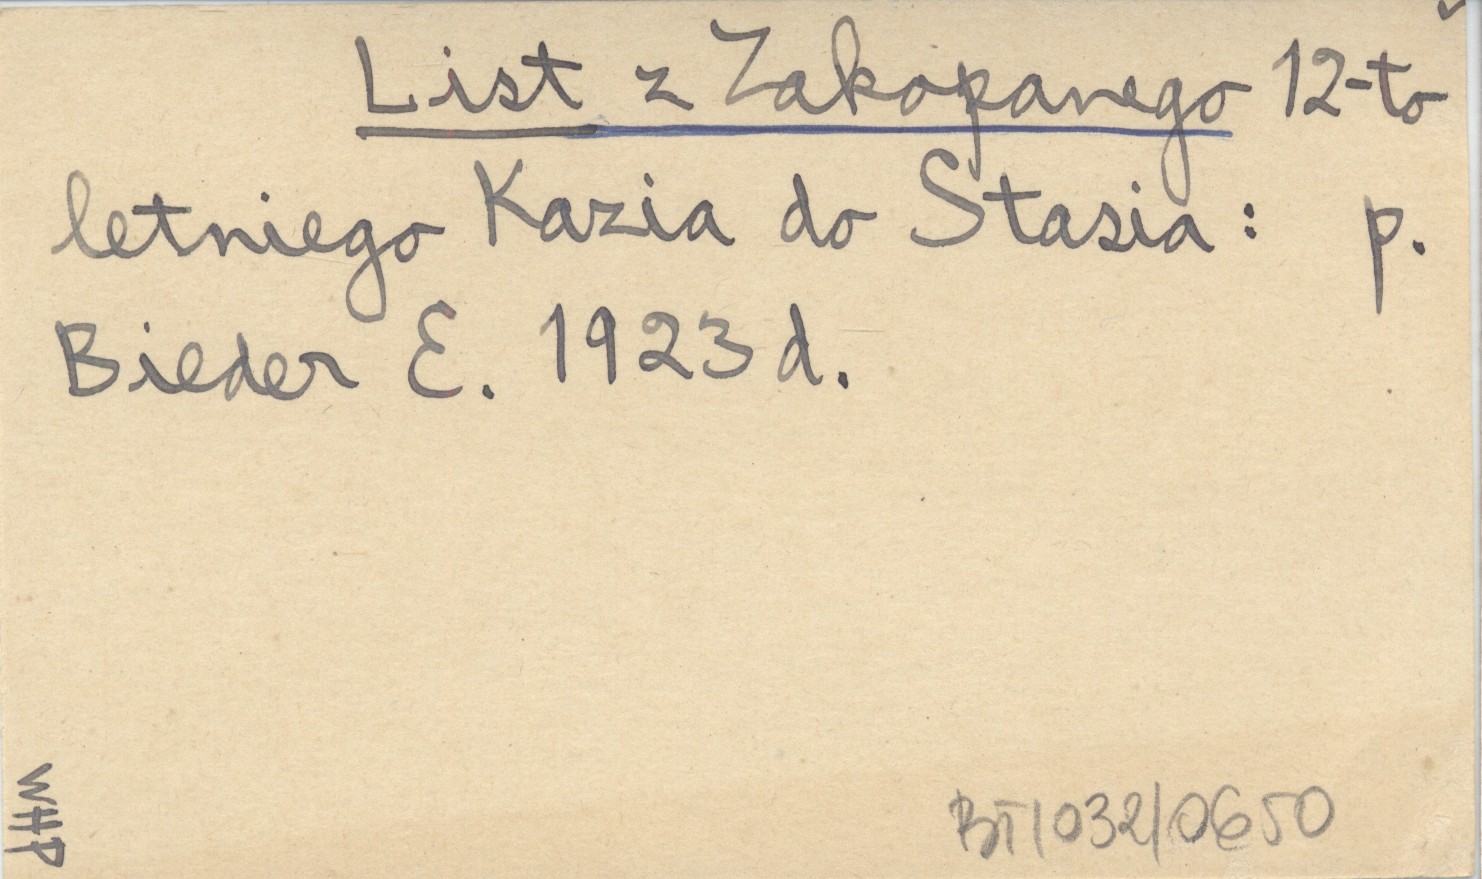 List z Zakopanego 12-to
letniego Kazia do Stasia: p.
Bieder E. 1923 d.
WHP
BT/032/0650